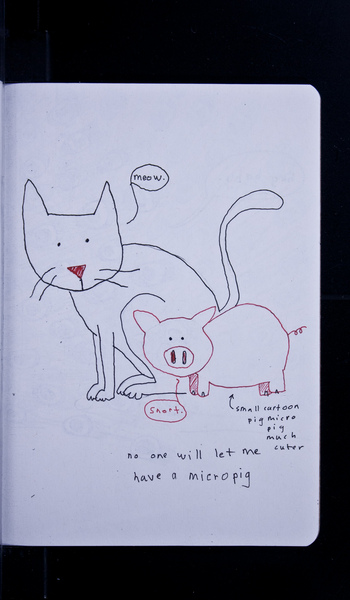 meow.
Snort.
small cartoon
pig micro
pig
much
cuter
no one will let me
have a micropig